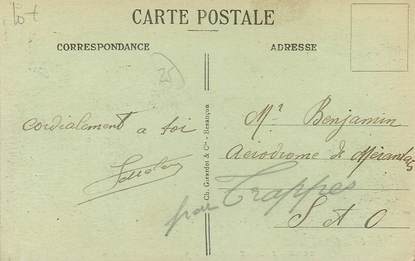 Lot
CARTE POSTALE
CORRESPONDANCE
ADRESSE
25
Cordialement a toi
Ch. Girardot & Cie - Besançon
Mr Benjamin
Aérodrome de Mérantais
par Trappes
S et O